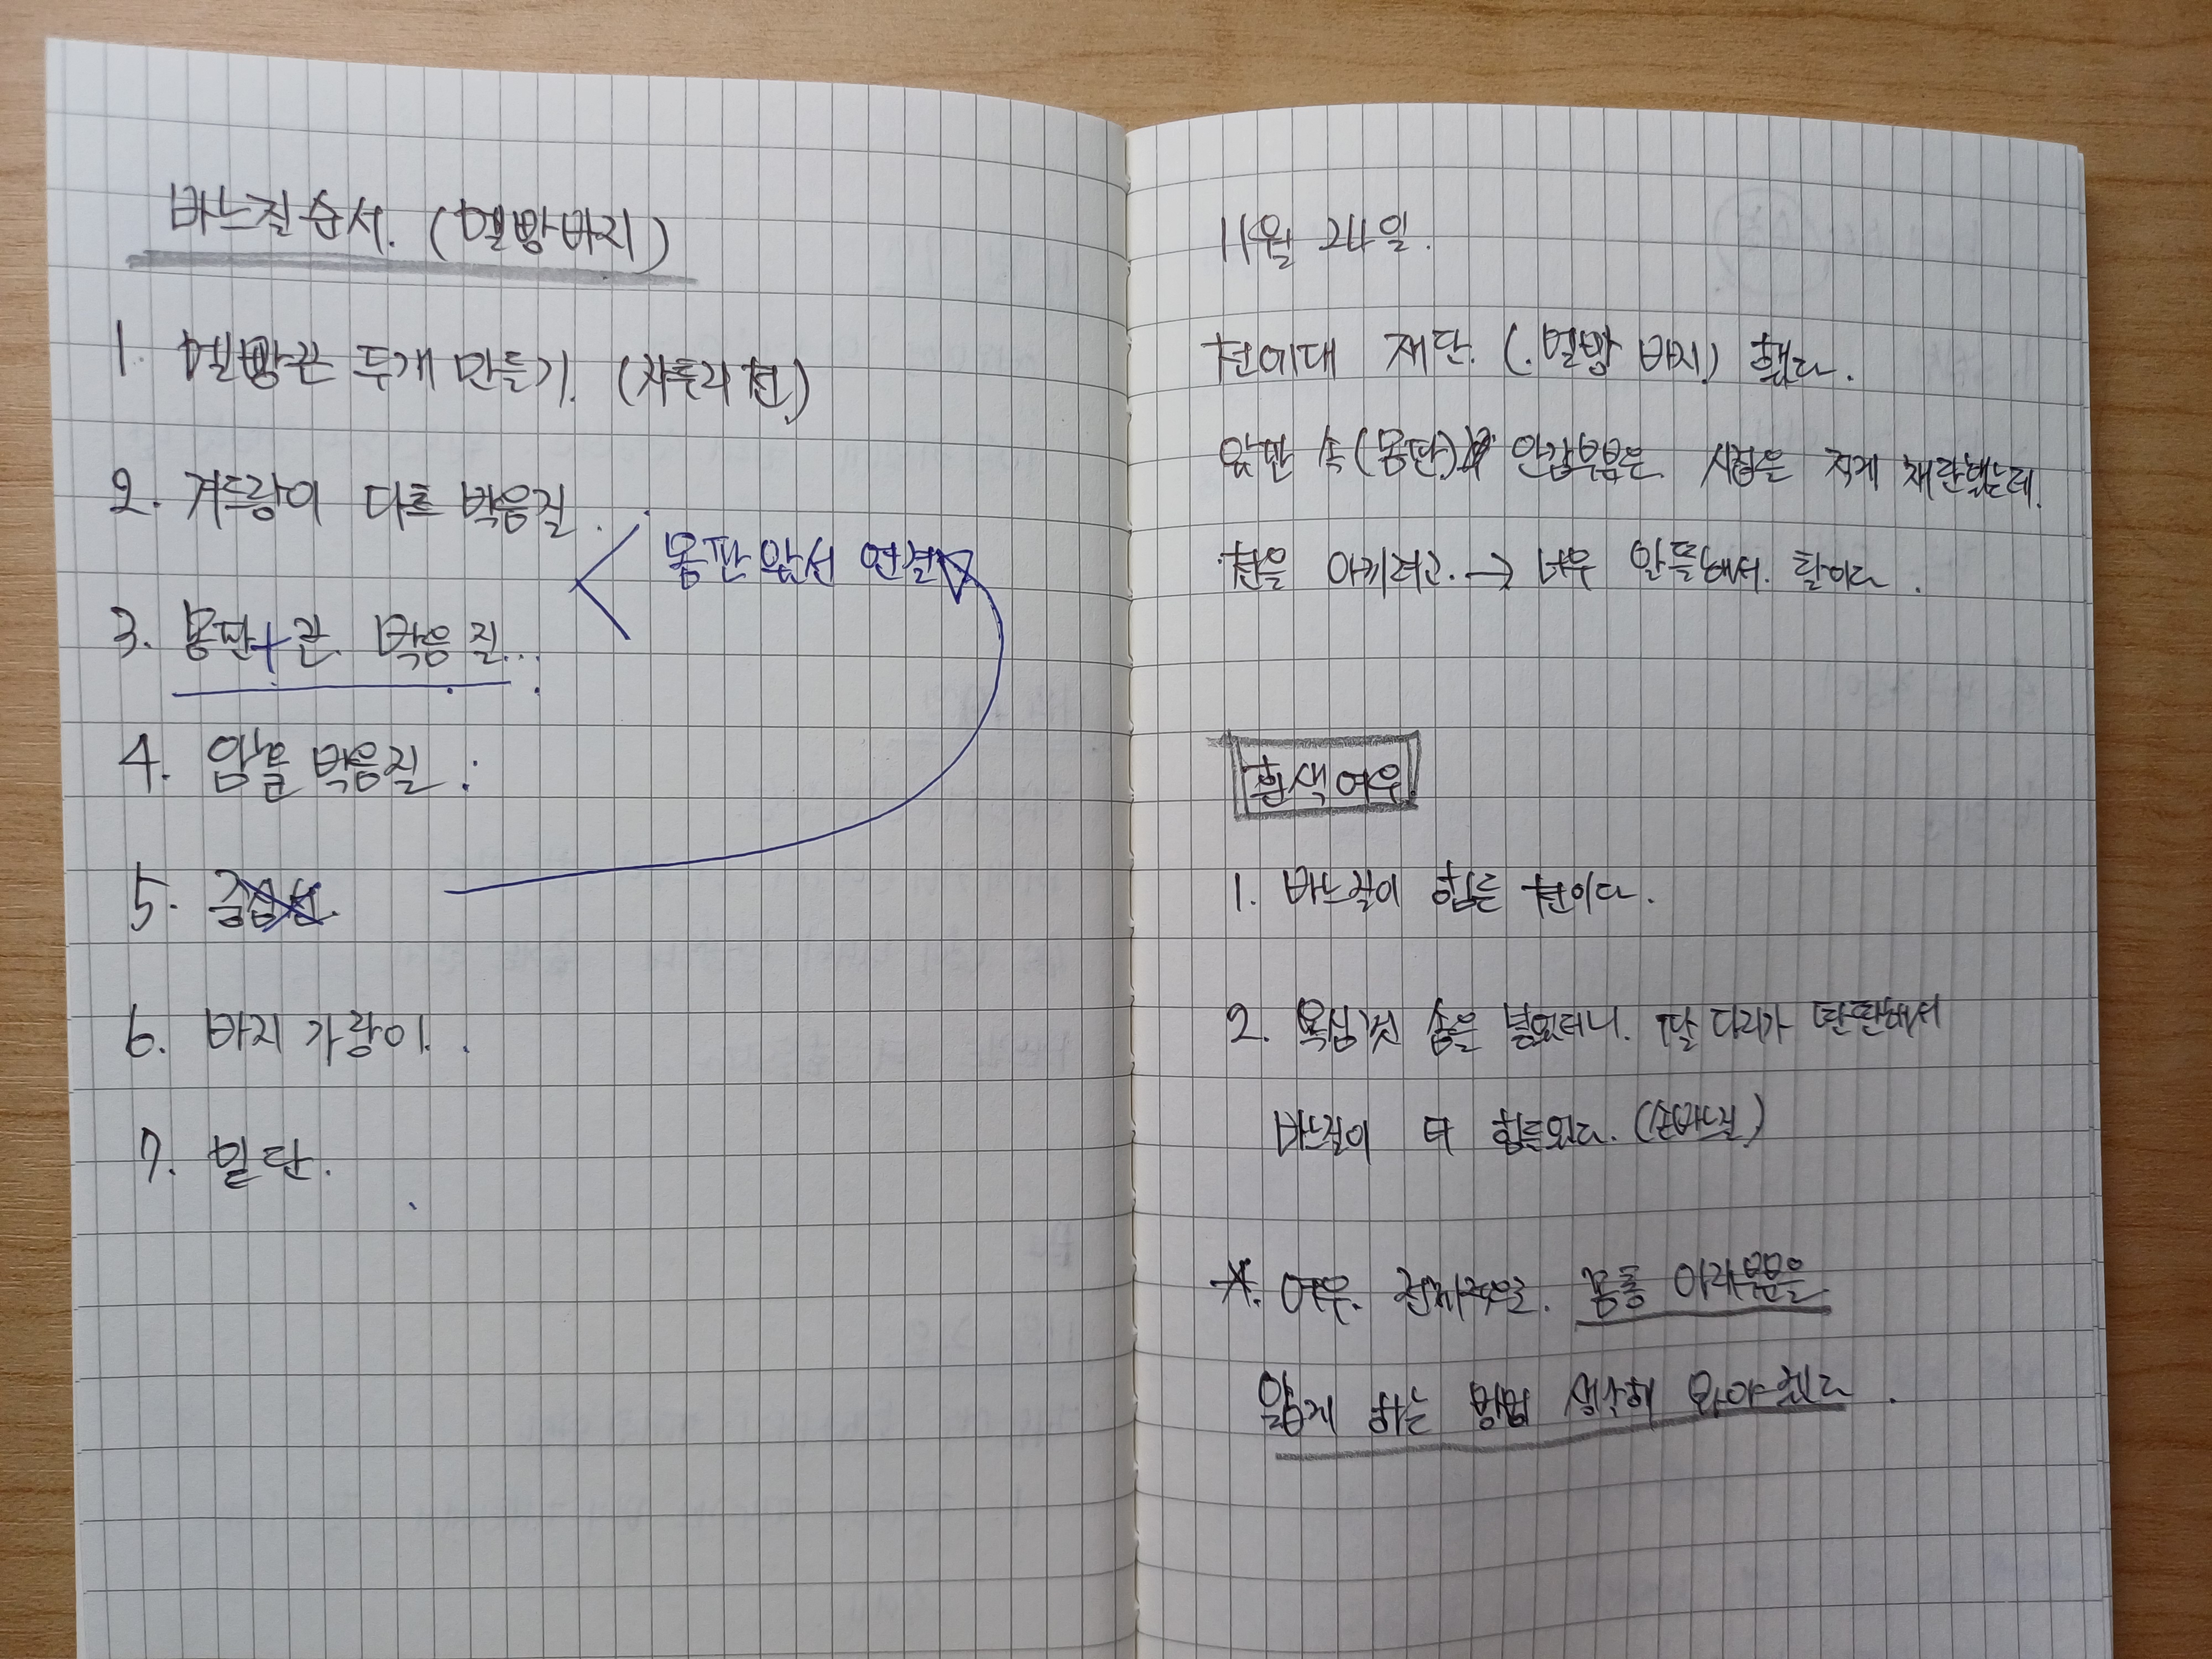 바느질순서. (멜빵바지)
1. 멜빵끈 두개 만들기. (자투리 천.)
2. 겨드랑이 다트 박음질.
몸판 앞선 연결
3. 몸판+끈 박음질...
4. 암홀 박음질.
5. 중심선.
6. 바지 가랑이.
7. 밑단.
11월 24일.
천이대 재단. (.멜빵 바지.) 했다.
앞판 속(몸판) 안감부분은 시접은 적게 재단했는데.
천을 아끼려고. → 너무 알뜰해서. 탈이다.
흰색여우
1. 바느질이 힘든 천이다.
2. 욕심껏 솜을 넣었더니. 팔 다리가 딴딴해서
바느질이 더 힘들었다. (손바느질)
여우. 몸통 아랫부분을
얇게 하는 방법 생각해 봐야겠다.